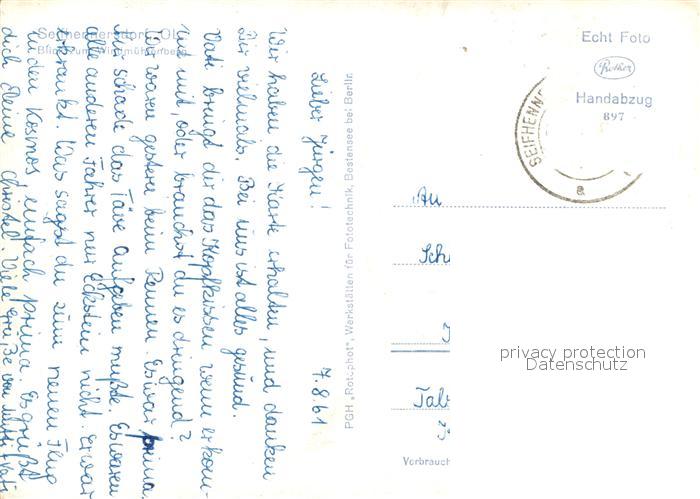 Seifhennersdorf, OL.
Blick zum Windmühlenberg
7.8.61
Lieber Jürgen!
Wir haben die Karte erhalten, und danken
dir vielmals. Bei uns ist alles gesund.
Vati bringt dir das Kopfkissen wenn er kom-
mt mit, oder brauchst du es dringend?
Wir waren gestern beim Rennen. Es war prima,
nur schade das Täve aufgeben mußte. Es waren
alle anderen Fahrer nur Eckstein nicht. Er war
erkrankt. Was sagst du zum neuen Flug
in den Kosmos einfach prima. Es grüßt
dich deine Christel. Viele Grüße von Mutti + Vati
PGH „Rotophot", Werkstätten für Fototechnik, Bestensee bei Berlin
Echt Foto
Rother
Handabzug
897
SEIFHENN
a
An
Sch
Tab
Verbrauch
privacy protection
Datenschutz